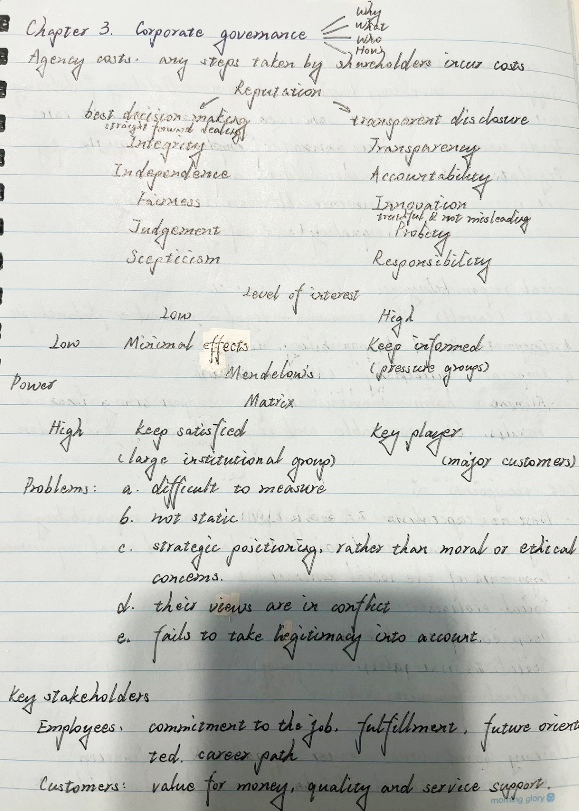 Why
What
Chapter 3. Corporate governance
Who
How
Agency costs. any steps taken by shareholders incur costs
Reputation
best decision making transparent disclosure
straight forward dealing
Integrity Transparency
Independence Accountability
Fairness Innovation
truthful & not misleading
Judgement Probity
Scepticism Responsibility
Level of interest
Low High
Low Minimal effects Keep informed
(pressure groups)
Mendelow's
Power
Matrix
High Keep satisfied Key player
(large institutional group) (major customers)
Problems: a. difficult to measure
b. not static
c. strategic positioning, rather than moral or ethical
concerns.
d. their views are in conflict
e. fails to take legitimacy into account.
Key stakeholders
Employees. commitment to the job, fulfillment, future orien
ted. career path
Customers: value for money, quality and service support.
morning glory